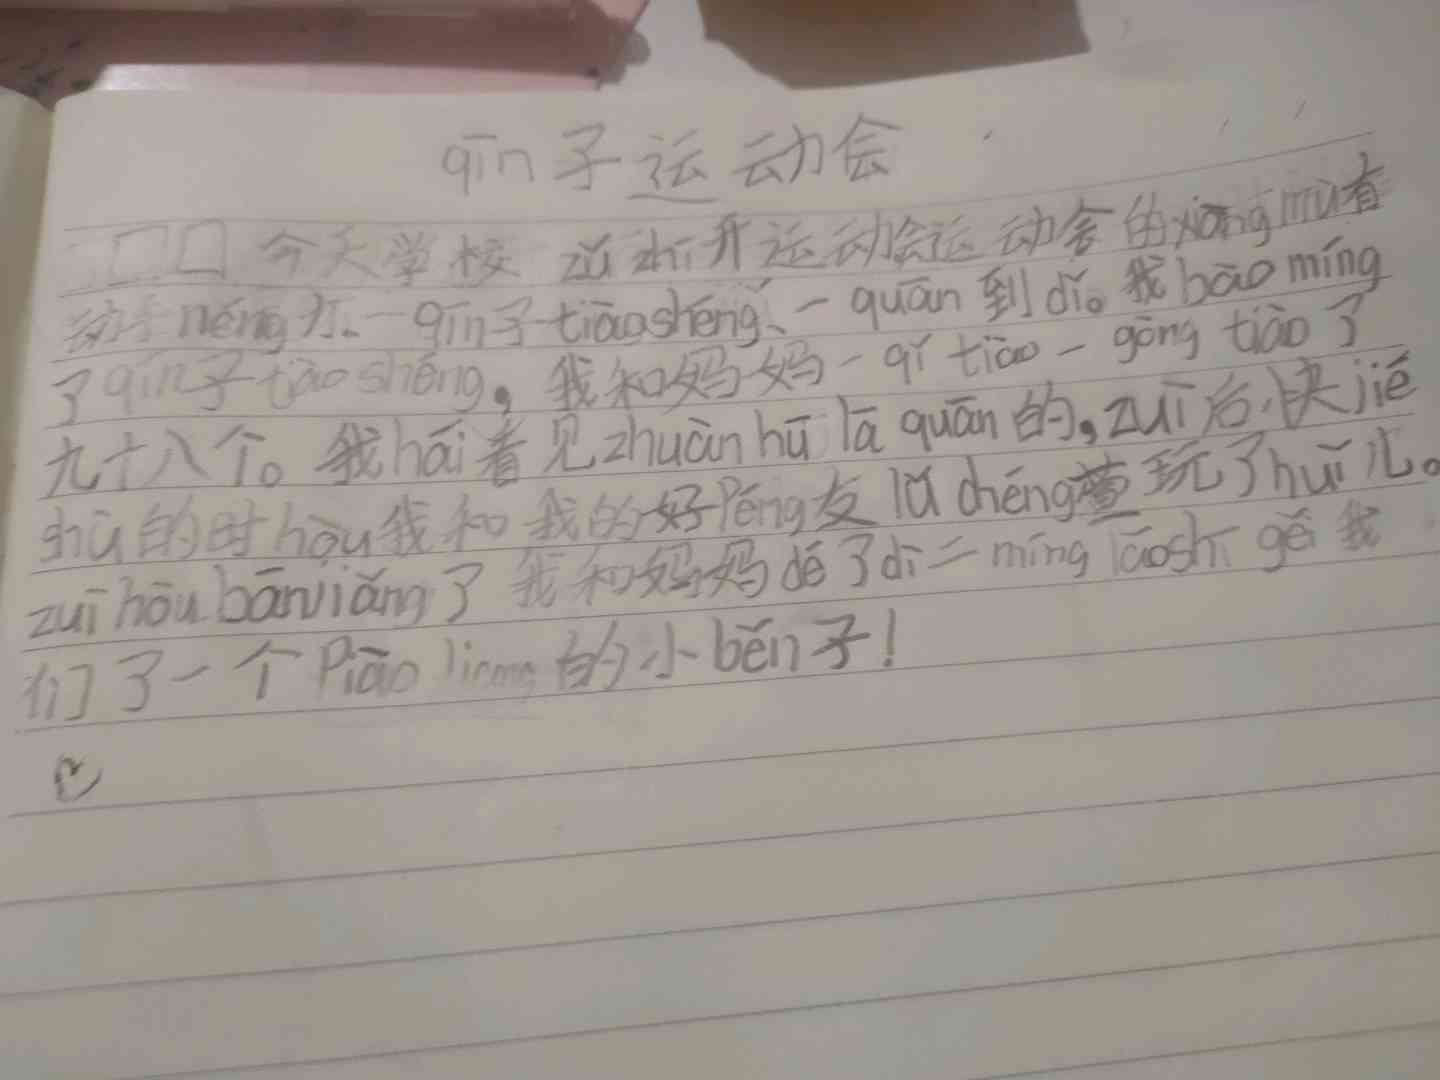 qīn子运动会
今天学校 zǔ zhī开运动会运动会的xiàng mù有
动手néng力、一qīn子tiàoshéng、一quān到dǐ。我bào míng
了qīn子tiào shéng,我和妈妈一qǐ tiào一gòng tiào了
九十八个。我hái看见zhuàn hū lā quān的,zuì后,快jié
shù的时hòu我和我的好Péng友 lǚ chéng 玩了huǐ儿。
zuì hòu bānjiǎng了我和妈妈dé了dì二míng lǎoshī gěi我
们了一个Piào liang的小běn子!